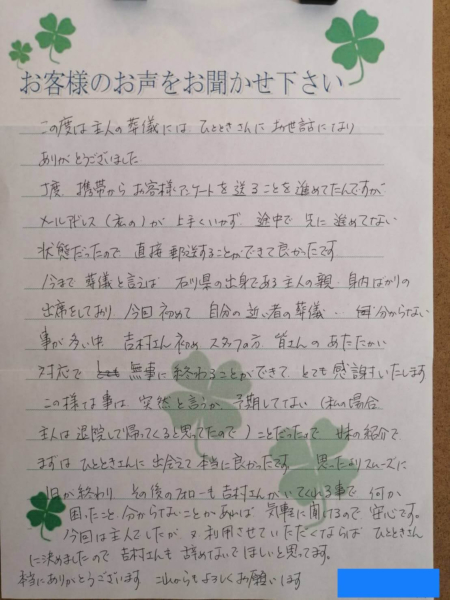 お客様のお声をお聞かせ下さい
この度は主人の葬儀には ひとときさんに お世話になり
ありがとうございました
丁度 携帯から お客様アンケートを 送ることを 進めてたんですが
メールアドレス (私の) が 上手くいかず 途中で 先に 進めてない
状態だったので 直接 郵送することができて良かったです
今まで 葬儀と言えば 石川県の出身である 主人の親・身内ばかりの
出席をしており 今回 初めて 自分の 近い者の葬儀、分からない
事が多い中 吉村さん初め スタッフの方 皆さんの あたたかい
対応で 無事に 終わることができて とても 感謝いたします
この様な事は 突然と言うか 予期してない (私の場合
主人は退院して帰ってくると思ってたので) ことだったので 妹の紹介で
まずは ひとときさんに 出会えて 本当に良かったです 思ったよりスムーズに
1日が終わり その後のフォローも 吉村さんがいてくれる事で 何か
困ったこと 分からないことがあれば 気軽に聞けるので 安心です。
今回は主人でしたが 又 利用させていただくならば ひとときさん
に決めましたので 吉村さんも 辞めないでほしいと思ってます。
本当にありがとうございます これからもよろしくお願いします